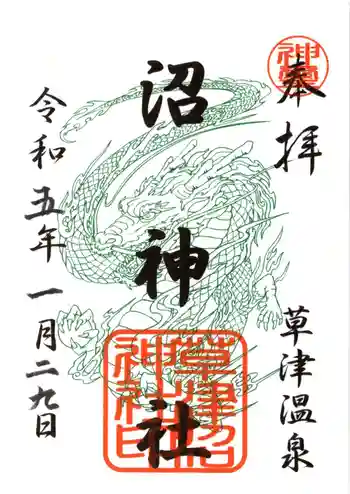 奉拝
草津温泉
沼神社
草津沼神社印
令和五年一月二九日